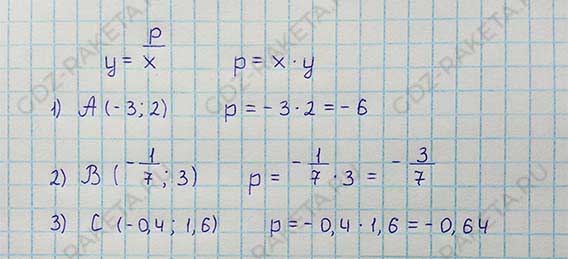 y = p/x    p = x · y
1) A (-3; 2)    p = -3 · 2 = -6
2) B (-1/7; 3)    p = -1/7 · 3 = -3/7
3) C (-0,4; 1,6)    p = -0,4 · 1,6 = -0,64
GDZ-RAKETA.RU